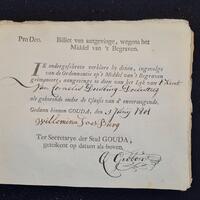 Pro Deo. Billet van aangevinge, wegens het
Middel van 't Begraven.
IK ondergeschreeve verklare by dezen, ingevolge
van de Ordonnantie op 't Middel van 't Begraven
geëmaneert, aangevinge te doen van het Lyk van 't Kind
van Cornelis
als gehoorende onder de Classis van d' onvermogende.
Gedaan binnen GOUDA, den 1801
Willemina
Ter Secretarye der Stad GOUDA,
getekent op datum als boven,